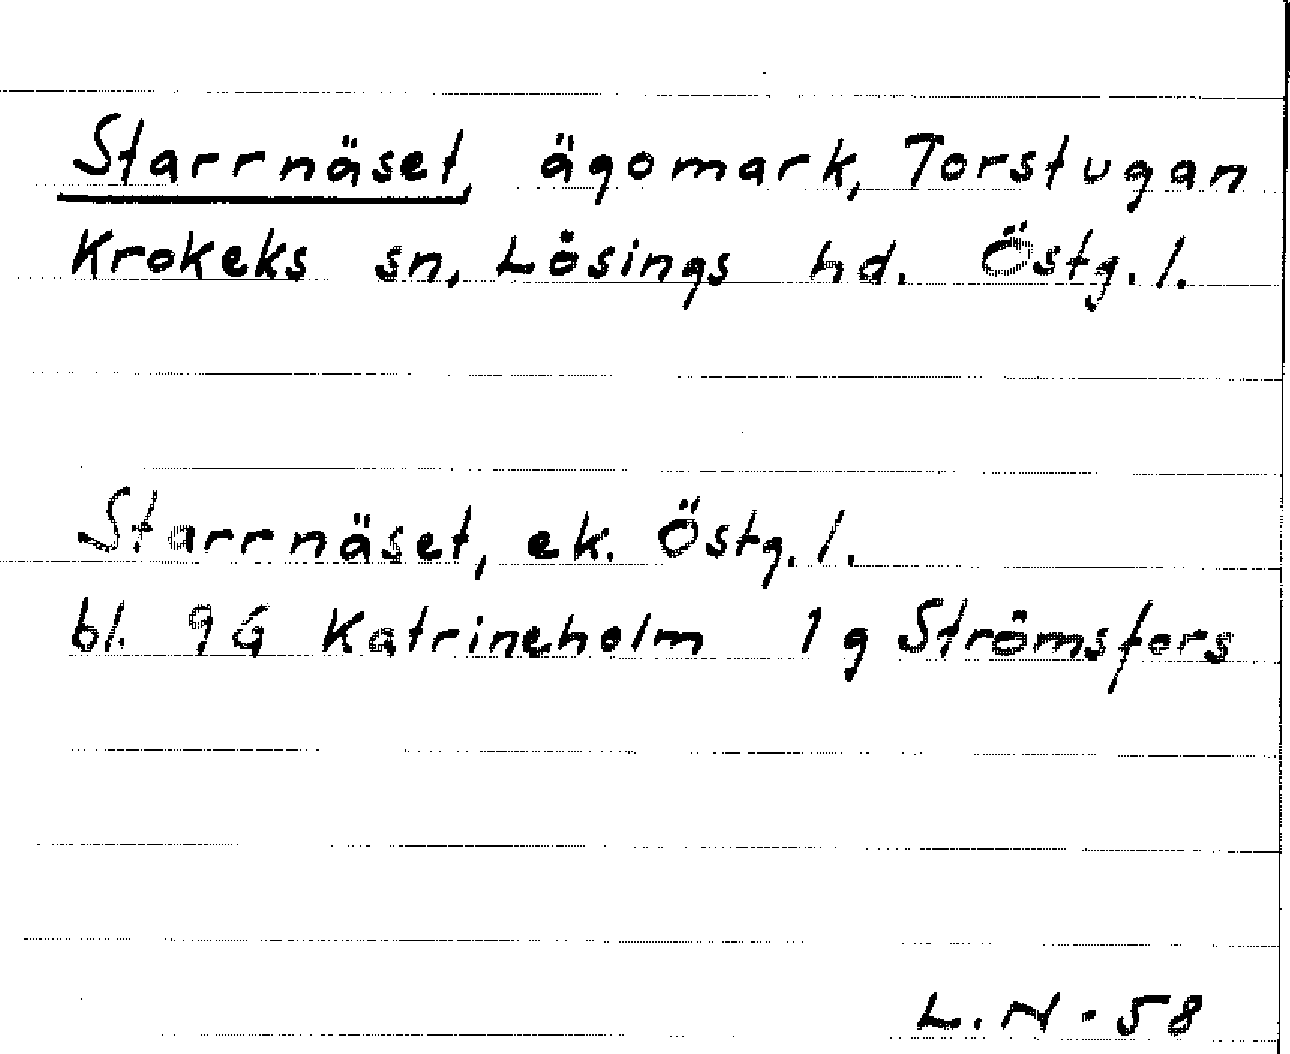 Starrnäset, ägomark, Torstugan
Krokeks sn, Lösings hd. Östg. l.
Starrnäset, ek. Östg. l.
bl. 9G Katrineholm 1 g Strömsfors
L. N - 58